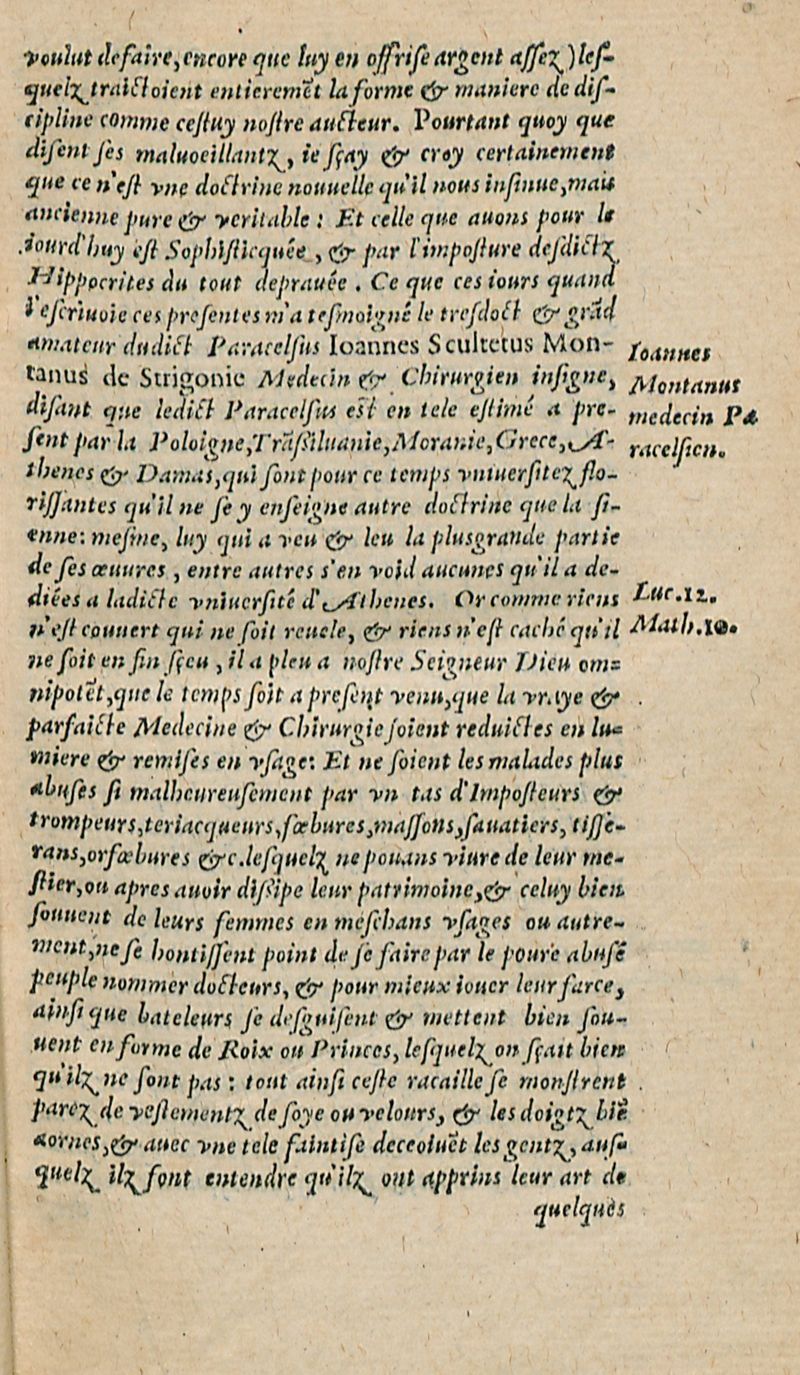 voulut defaire, encore que luy en offrise argent aſſez) leſ-
quelz traictoient entieremēt la forme & maniere de diſ-
cipline comme ceſtuy noſtre aucteur. Pourtant quoy que
diſent ſes maluoeillantz, ie ſçay & croy certainement
que ce n'eſt vne doctrine nouuelle qu'il nous inſinue, mais
ancienne pure & veritable : Et celle que auons pour le
iourd'huy eſt Sophiſticquée, & par l'impoſture deſdictz
Hippocrites du tout deprauée . Ce que ces iours quand
i'eſcriuoie ces preſentes m'a teſmoigné le treſdoct & grād
amateur dudict Paracelſus Ioannes Scultetus Mon-
tanus de Strigonie Medecin & Chirurgien inſigne,
diſant que ledict Paracelſus eſt en tele eſtimé a pre-
ſent par la Poloigne, Trāſſiluanie, Moranie, Grece, A-
thenes & Damas, qui ſont pour ce temps vniuerſitez flo-
riſſantes qu'il ne ſe y enſeigne autre doctrine que la ſi-
enne: meſme, luy qui a veu & leu la plusgrande partie
de ſes œuures , entre autres s'en void aucunes qu'il a de-
diées a ladicte vniuerſité d'Athenes. Or comme riens
n'eſt couuert qui ne ſoit reuele, & riens n'eſt caché qu'il
ne ſoit en fin ſçeu , il a pleu a noſtre Seigneur Dieu om=
nipotēt, que le temps ſoit a preſent venu, que la vraye &
parfaicte Medecine & Chirurgie ſoient reduictes en lu=
miere & remiſes en vſage: Et ne ſoient les malades plus
abuſes ſi malheureuſement par vn tas d'Impoſteurs &
trompeurs, teriacqueurs, ſœbures, maſſons, ſauatiers, tiſſe-
rans, orfœbures &c. leſquelz ne pouans viure de leur me-
ſtier, ou apres auoir diſsipe leur patrimoine, & celuy bien
ſouuent de leurs femmes en meſchans vſages ou autre-
ment, ne ſe hontiſſent point de ſe faire par le poure abuſé
peuple nommer docteurs, & pour mieux iouer leur farce,
ainſi que bateleurs ſe deſguiſent & mettent bien ſou-
uent en forme de Roix ou Princes, leſquelz on ſçait bien
qu'ilz ne ſont pas : tout ainſi ceſte racaille ſe monſtrent
parez de veſtementz de ſoye ou velours, & les doigtz biē
aornes, & auec vne tele faintiſe deceoiuēt les gentz, auſ-
quelz ilz font entendre qu'ilz ont apprins leur art de
quelques
Ioannes
Montanus
medecin Pa
racelſien.
Luc.12.
Math.10.